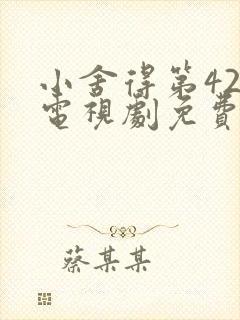 小舍得第42
電視劇免費
蔡某某